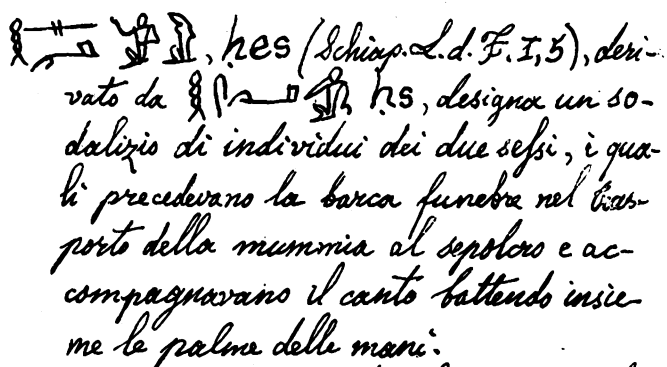 , ḥes (Schiap. L. d. F. I, 5), deri-
vato da ḥs, designa un so-
dalizio di individui dei due sessi, i qua-
li precedevano la barca funebre nel tras-
porto della mummia al sepolcro e ac-
compagnavano il canto battendo insie-
me le palme delle mani.